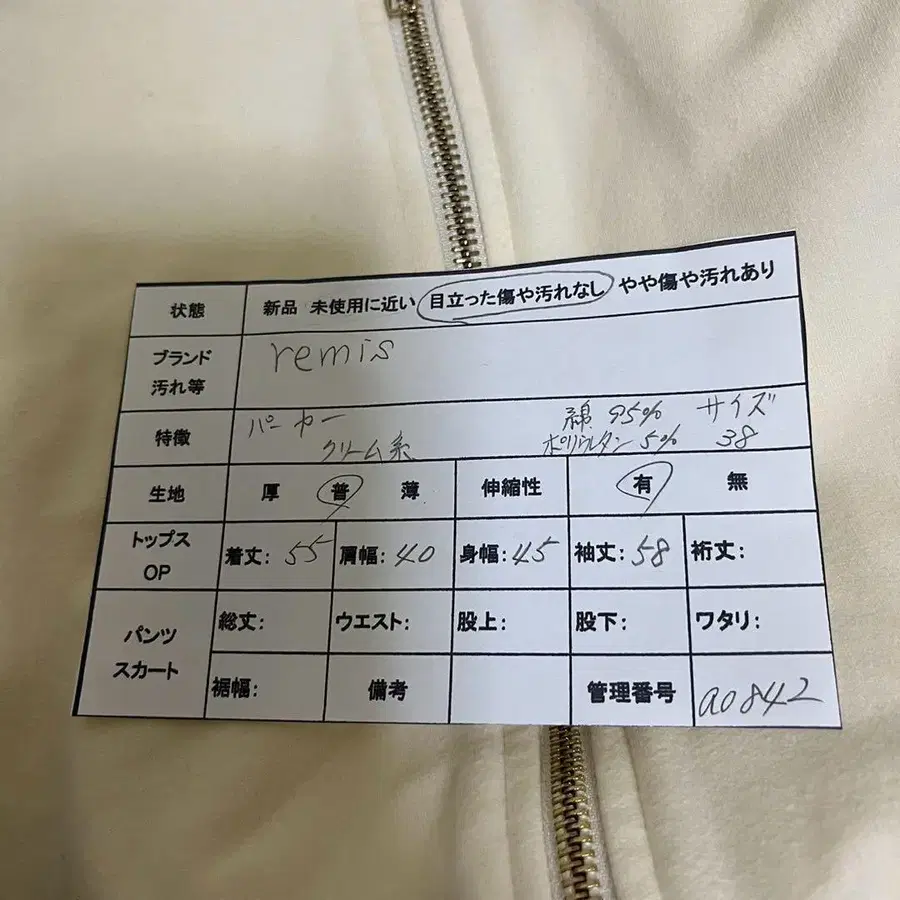 状態 新品 未使用に近い 目立った傷や汚れなし やや傷や汚れあり
ブランド
汚れ等
remis
特徴
パーカー 綿 95% サイズ
クリーム系 ポリウレタン 5% 38
生地 厚 普 薄 伸縮性 有 無
トップス
OP
着丈: 55 肩幅: 40 身幅: 45 袖丈: 58 裄丈:
パンツ
スカート
総丈: ウエスト: 股上: 股下: ワタリ:
裾幅: 備考 管理番号 a0842